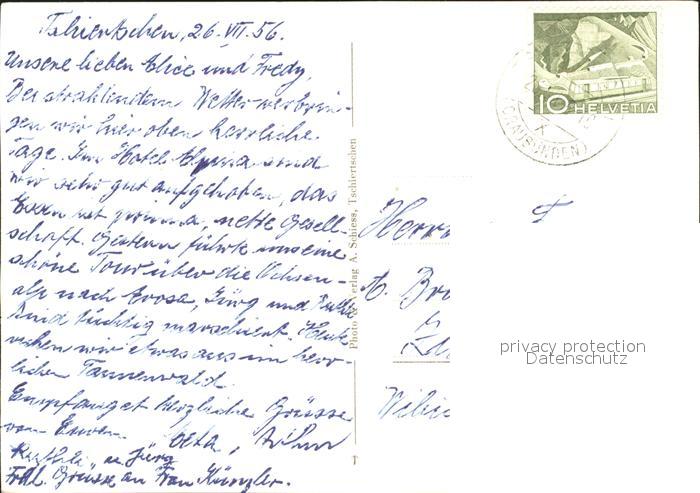 Tschiertschen, 26. VII. 56.
Unsere lieben Alice und Fredy,
Bei strahlendem Wetter verbrin-
gen wir hier oben herrliche
Tage. Im Hotel Alpina sind
wir sehr gut aufgehoben, das
Essen ist prima, nette Gesell-
schaft. Gestern führte uns eine
schöne Tour über die Ochsen-
alp nach Arosa, Jürg und
sind tüchtig marschiert. Heute
ruhen wir etwas aus im herr-
lichen Tannenwald.
Empfanget herzliche Grüsse
von Euren
Jürg
Frdl. Grüsse an Frau Künzler.
Photo & Verlag A. Schiess, Tschiertschen
10 HELVETIA
(GRAUBÜNDEN)
Herrn
A.
privacy protection
Datenschutz